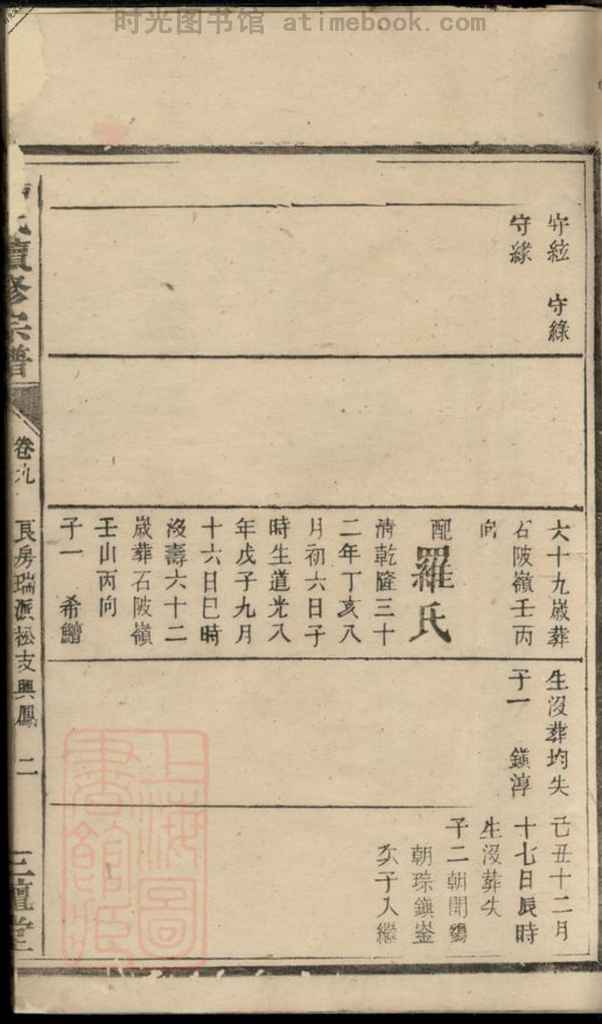 时光图书馆 atimebook.com
守紘 守綠
守緣
六十九嵗葬
石陂嶺壬丙
向
配羅氏
淸乾隆三十
二年丁亥八
月初六日子
時生道光八
年戊子九月
十六日巳時
沒壽六十二
嵗葬石陂嶺
壬山丙向
子一 希鱛
生沒葬均失
子一 鎭淳
己丑十二月
十七日辰時
生沒葬失
子二朝開
朝琮鎭崟
次子入繼
續修宗譜
卷九
長房瑞派松支興鳳 二
三 堂
上海圖書館藏